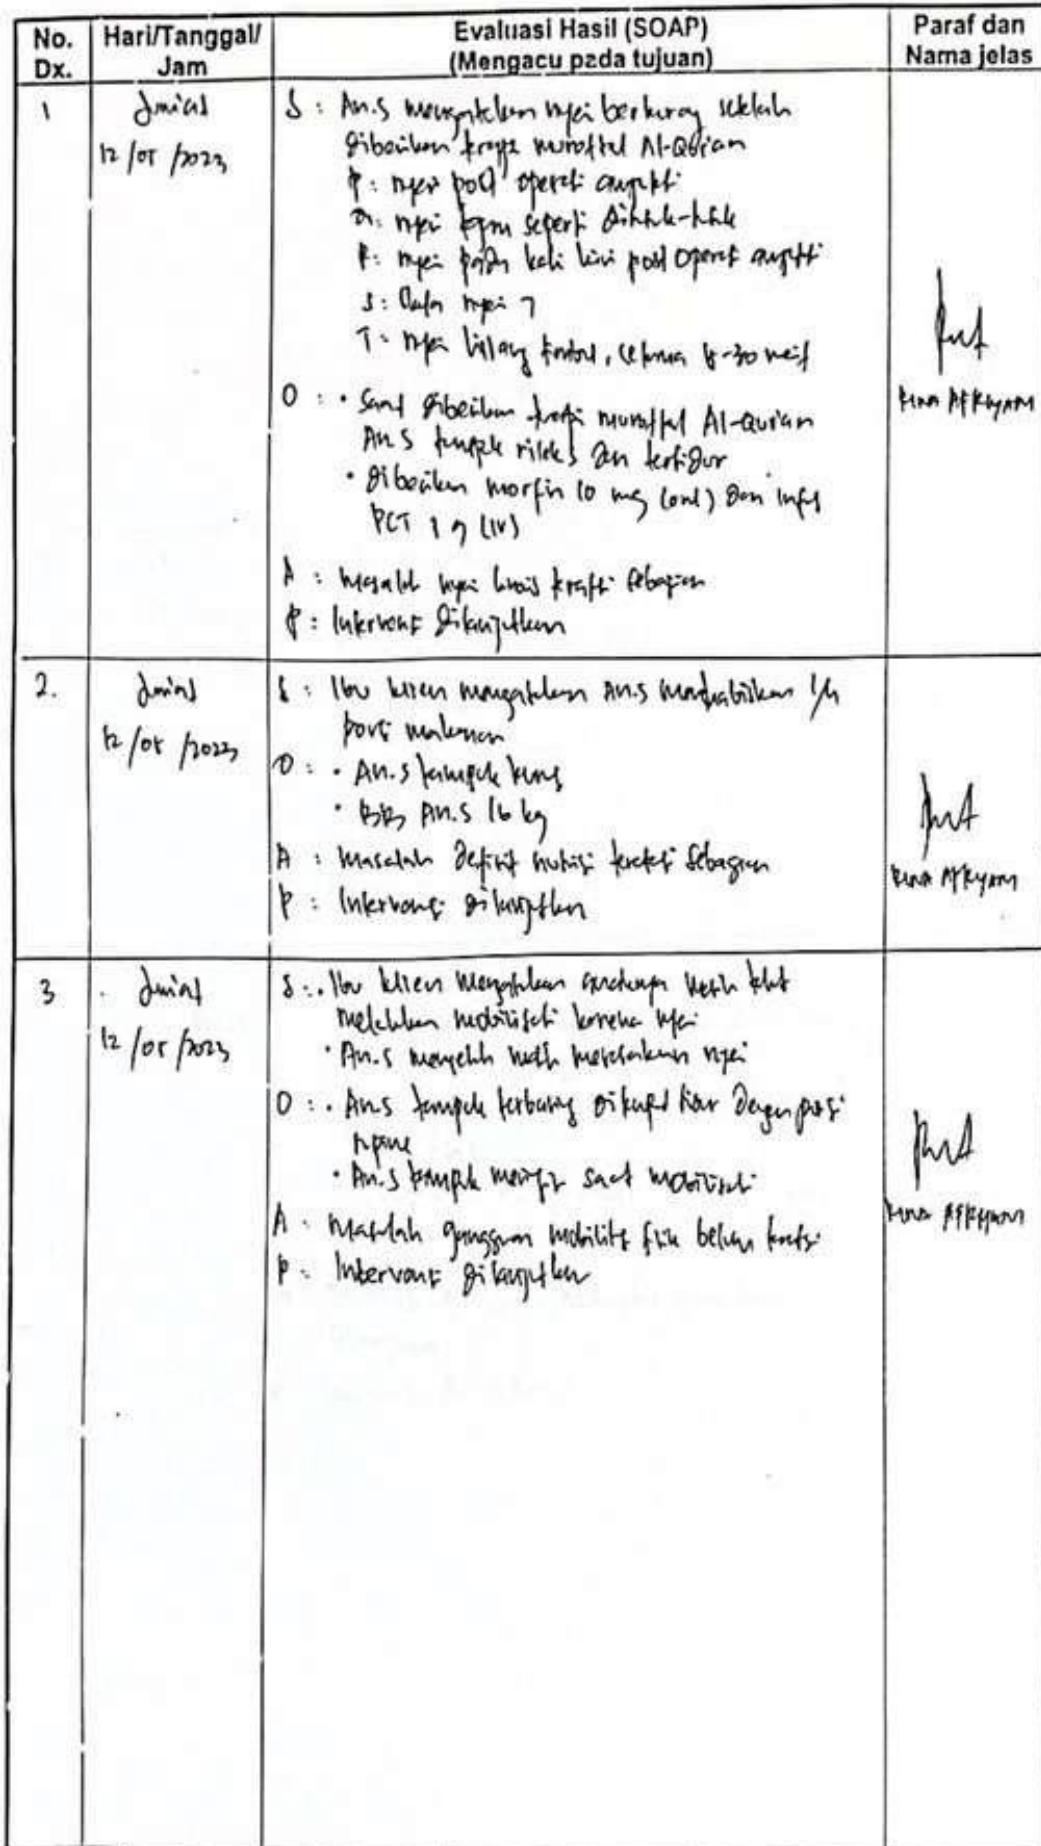 No. Dx.
Hari/Tanggal/ Jam
Evaluasi Hasil (SOAP)
(Mengacu pada tujuan)
Paraf dan Nama jelas
1
Jumat
12/05/2023
S : An.S mengatakan nyeri berkurang setelah
diberikan terapi murottal Al-Qur'an
P : nyeri post operasi amputasi
Q : nyeri tajam seperti ditusuk-tusuk
R : nyeri pada kaki kiri post operasi amputasi
S : Skala nyeri 7
T : nyeri hilang timbul, selama menit
O : • Saat diberikan terapi murottal Al-Qur'an
An.S tampak rileks dan tertidur
• diberikan morfin 10 mg (oral) dan infus
PCT 1 g (IV)
A : Masalah nyeri kronis teratasi sebagian
P : Intervensi dilanjutkan
2.
Jumat
12/05/2023
S : Ibu klien mengatakan An.S menghabiskan
porsi makanan
O : • An.S tampak kurus
• BB An.S 16 kg
A : Masalah defisit nutrisi teratasi sebagian
P : Intervensi dilanjutkan
3
Jumat
12/05/2023
S : • Ibu klien mengatakan anaknya masih takut
melakukan mobilisasi karena nyeri
• An.S mengeluh masih merasakan nyeri
O : • An.S tampak terbaring di tempat tidur dengan posisi
• An.S tampak meringis saat mobilisasi
A : Masalah gangguan mobilitas fisik belum teratasi
P : Intervensi dilanjutkan